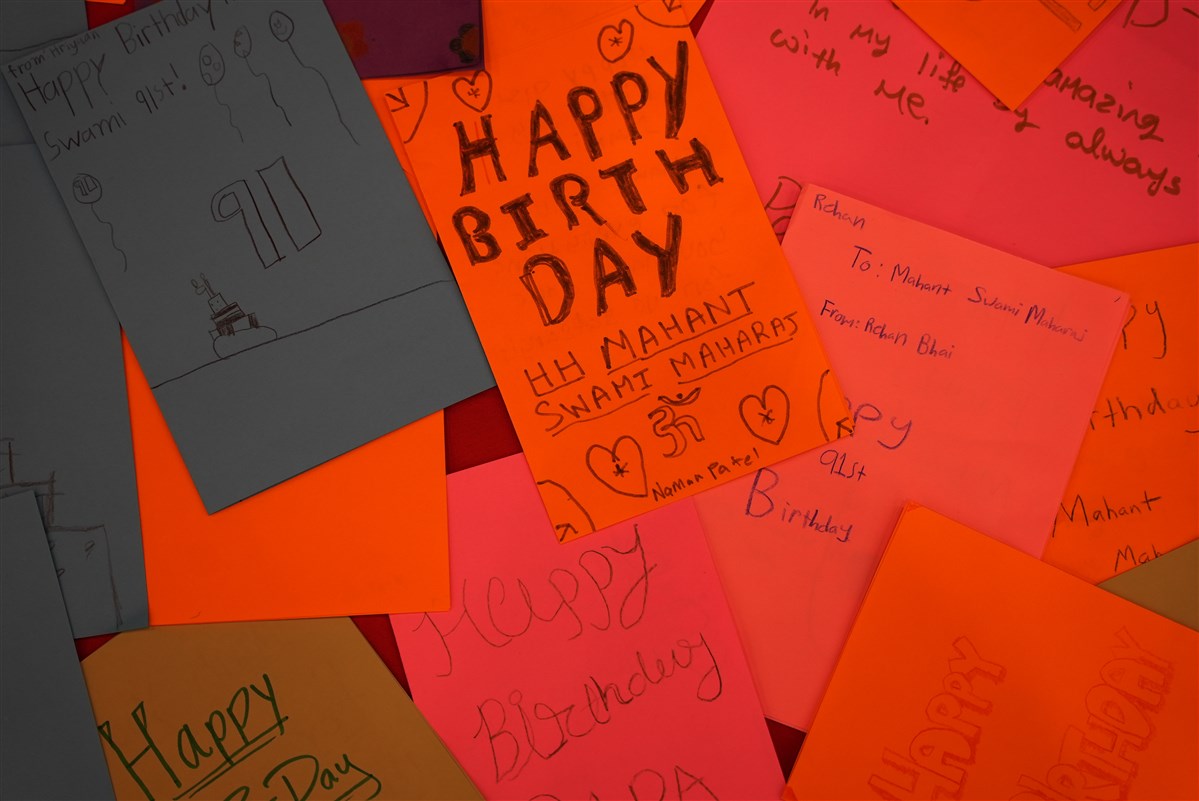 from Hriyaan
Happy Birthday
Swami 91st!
91
91
HAPPY
BIRTH
DAY
HH MAHANT
SWAMI MAHARAJ
ॐ
Naman Patel
in my life
amazing
by always
with me.
Rehan
To: Mahant Swami Maharaj
From: Rehan Bhai
ppy
91st
Birthday
py
rthday
Mahant
Mah
Happy
Birthday
Happy
B-Day
HAPPY
BIRTHDAY